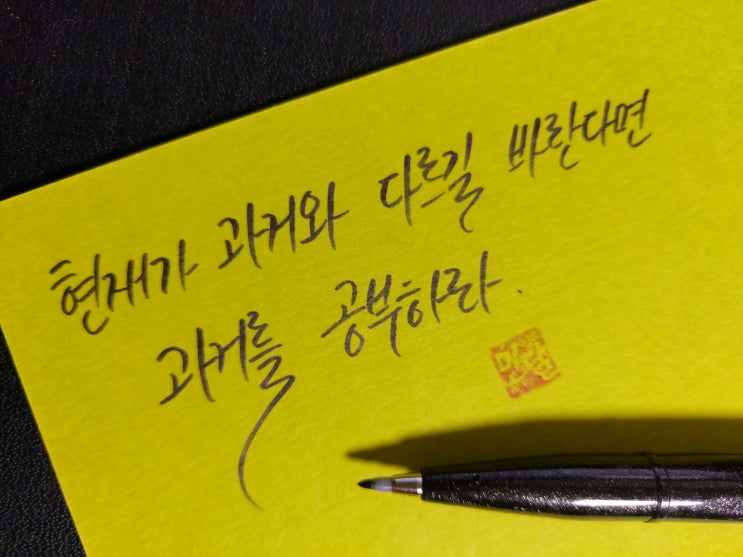 현재가 과거와 다르길 바란다면
과거를 공부하라.